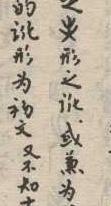 之炎形之訛或兼为
的訛形为初文又不知